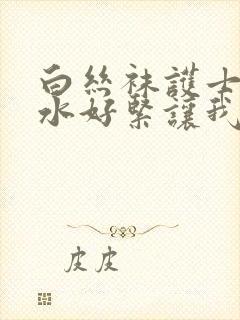 白丝袜護士
水好緊讓我
皮皮